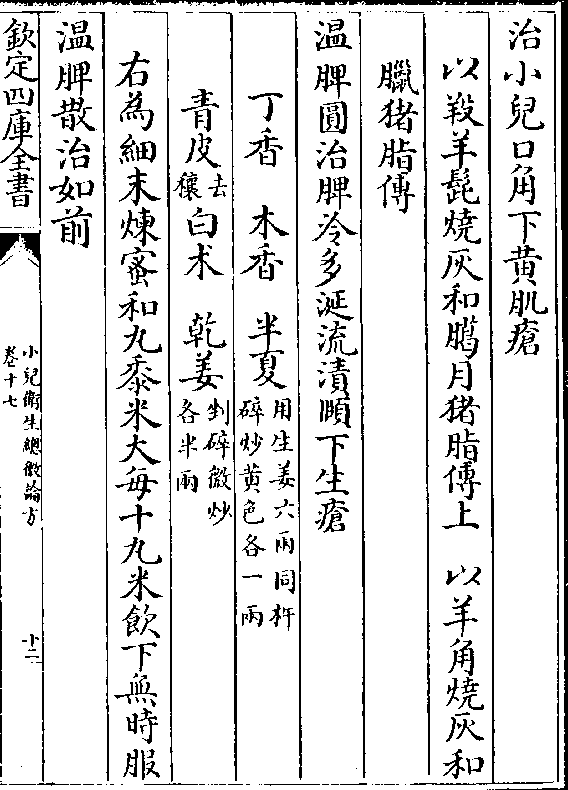 治小兒口角下黃肌瘡
以羖羊髭燒灰和臈月猪脂傅上　以羊角燒灰和
臘猪脂傅
温脾圓治脾冷多涎流漬頤下生瘡
丁香　木香　半夏用生姜六兩同杵碎炒黄色各一兩
青皮去穰　白术　乾姜剉碎微炒各半兩
右為細末煉蜜和丸黍米大每十丸米飲下無時服
温脾散治如前
欽定四庫全書
小兒衛生總微論方
卷十七
十二